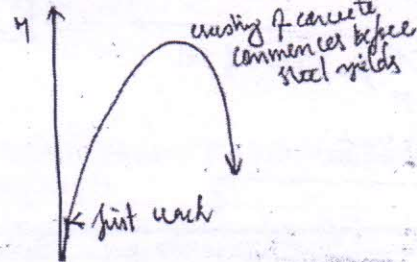 M
crushing of concrete
commences before
steel yields
first crack